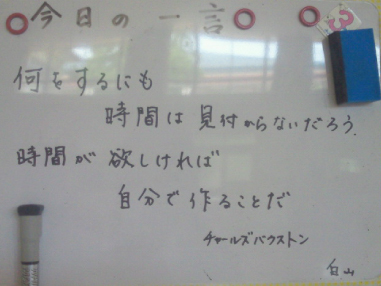 今日の一言
何をするにも
時間は見付からないだろう.
時間が欲しければ
自分で作ることだ
チャールズバクストン
白山